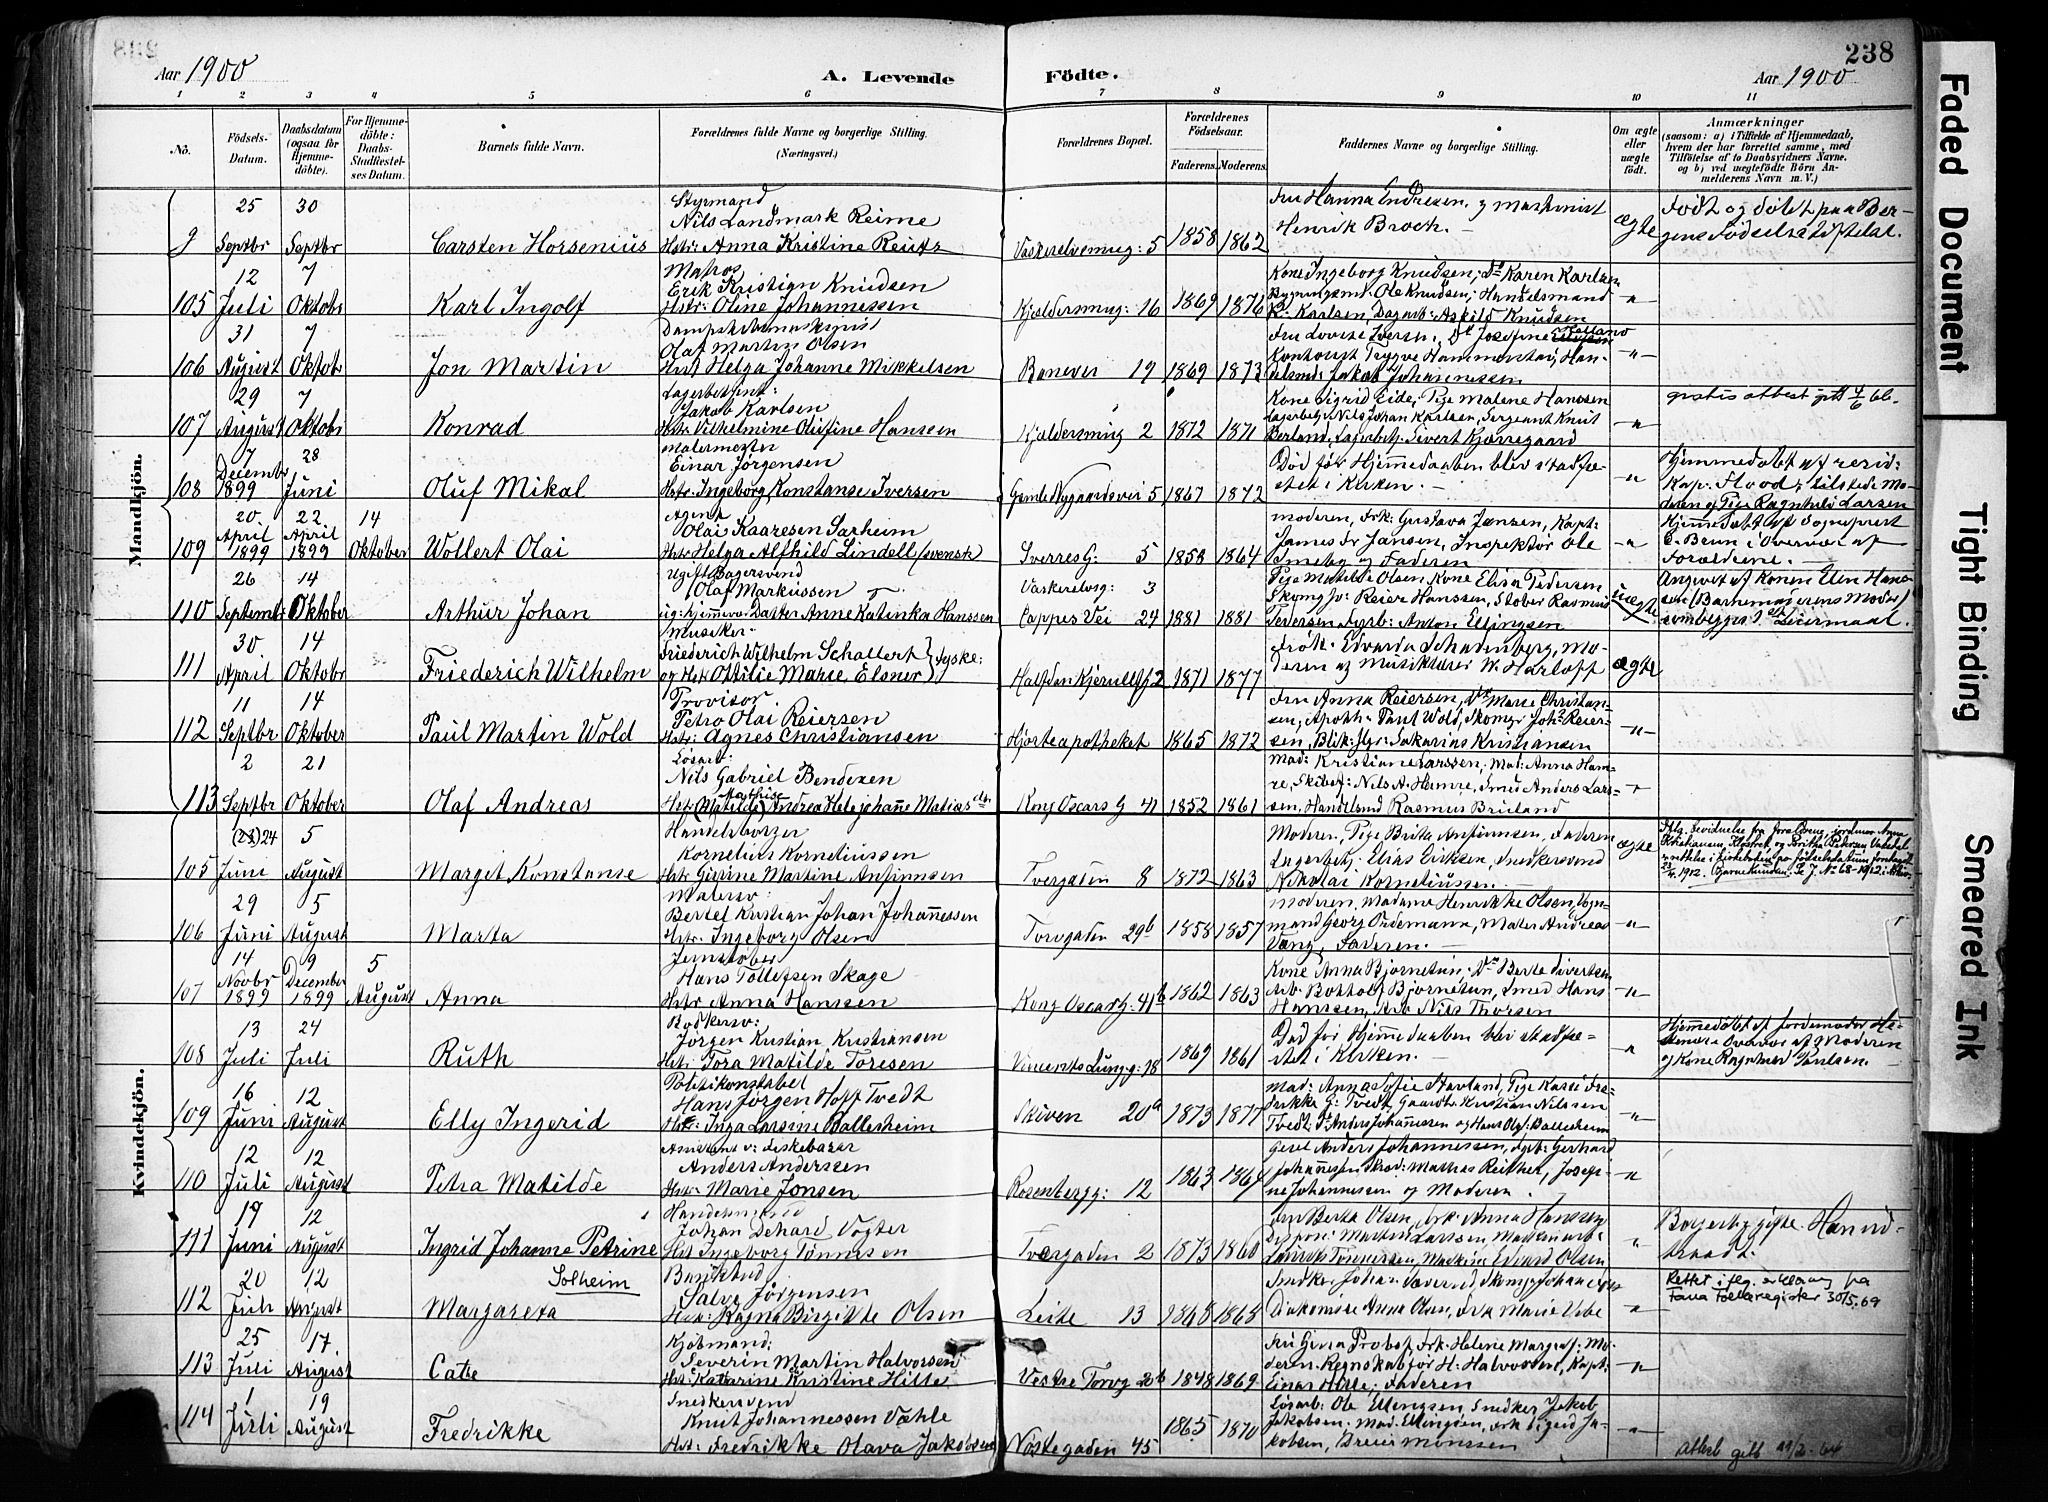 238
Aar 1900
A. Levende
Födte.
Aar 1900
1 2 3 4 5 6 7 8 9 10 11
No.
Födsels-Datum.
Daabsdatum (ogsaa for Hjemme-döbte).
For Hjemme-döbte: Daabs-Stadfæstel-ses Datum.
Barnets fulde Navn.
Forældrenes fulde Navne og borgerlige Stilling. (Næringsvei.)
Forældrenes Bopæl.
Forældrenes Födselsaar.
Faderens. Moderens.
Faddernes Navne og borgerlige Stilling.
Om ægte eller uægte födt.
Anmærkninger
(saasom: a) i Tilfælde af Hjemmedaab,
hvem der har forrettet samme, med
Tilföielse af to Daabsvidners Navne.
og b) ved uægtefödte Börn An-
melderens Navn m. V.)
Mandkjön.
9 25 Septbr 30 Septbr Carsten Horsenius
Styrmand
Nils Landmark Reime
Hstr: Anna Kristine Reutz
5 1858 1862
Fru Hanna Endresen, og Maskinist
Henrik Broch.
ægte
Födt og döbt paa Ber-
gens Födselsstiftelse.
105 12 Juli 7 Oktobr Karl Ingolf
Matros
Erik Kristian Knudsen
Hstr: Oline Johannessen
Kjeldersmug: 16 1869 1876
Kone Ingeborg Knudsen; Do Karen Karlsen
Ole Knudsen; Handelsmand
K. Karlsen, Dagarb: Askild Knudsen
106 31 August 7 Oktobr Jon Martin
Olaf Martin Olsen
Hstr Helga Johanne Mikkelsen
Banevei 19 1869 1873
Fru Lovise Iversen, Do Josefine
Kontorist Trygve Hammerstad, Han-
delsmd: Jakob Johannessen
107 29 August 7 Oktobr Konrad
Lagerbetjent:
Jakob Karlsen
Hstr: Vilhelmine Olufine Hanssen
Kjeldersmug 2 1872 1871
Kone Sigrid Eide, Pige Malene Hanssen
Lagerbetj: Nils Johan Karlsen, Sergeant Knut
Berland, Lagerbetj: Sivert Kjærregaard
108 7 Decembr 1899 28 Juni Oluf Mikal
Malermester
Einar Jörgensen
Hstr: Ingeborg Konstanse Iversen
Gamle Nygaardsvei 5 1867 1872
Död för Hjemmedaaben blev stadfæ-
stet i Kirken.
Hjemmedöbt af resid:
Kap. Flood; tilstede Mo-
deren og Pige Ragnhild Larsen
109 20 April 1899 22 April 1899 14 Oktober Wollert Olai
Agent
Olai Kaaresen Sarheim
Hstr: Helga Alfhild Lindell (svensk)
Sverresg: 5 1858 1864
Moderen, Frk: Gustava Jansen, Kapt:
James Fr Jansen, Inspektör Ole
og Faderen
Hjemmedöbt af Sogneprest
E. Brun i Overvær af
Forældrene.
110 26 Septembr 14 Oktober Arthur Johan
Ugift Bagersvend
Olaf Markussen
ug: hjemmev: Datter Anne Katinka Hanssen
Vaskerelvsg: 3
Cappes Vei 24 1881 1881
Pige Matilde Olsen, Kone Elisa Pedersen
Skomgsv: Reier Hanssen, Stöber Rasmus
Pedersen, Fyrb: Anton Ellingsen
uægte
Angivet af Konen Elen Hans-
sen (Barnemoderens Moder)
som begges 1ste Leiermaal.
111 30 April 14 Oktobr Friederich Wilhelm
Musiker
Friederich Wilhelm Schallert
og Hstr Ottilie Marie Elsner } tyske:
Halfdan Kjerulfs g 2 1871 1877
Frök: Edvarda Schadenberg, Mo-
deren og Musiklærer W. Harloff
ægte
112 11 Septbr 14 Oktober Paul Martin Wold
Provisor
Petro Olai Reiersen
Hstr: Agnes Christiansen
Hjorteapotheket 1865 1872
Fru Anna Reiersen, Do Marie Christian-
sen, Apoth: Paul Wold, Skomgr Johs Reier-
sen, Blik: Sakarias Kristiansen
113 2 Septbr 21 Oktober Olaf Andreas
Lösarb:
Nils Gabriel Bendixen
Mathise
Hstr: (Matilde) Andrea Helejohanne Matias dtr
Kong Oscars G 41 1852 1861
Mad: Kristiane Larssen, Mad: Anna Ham-
re, Skibstj: Nils A. Hamre, Smed Anders Lars-
sen, Handelsmd Rasmus Bruland
Kvindekjön.
105 (23) 24 Juni 5 August Margit Konstanse
Handelsborger
Kornelius Korneliussen
Hstr Gurine Martine Anfinnsen
Tvergaden 8 1872 1863
Moderen, Pige Brita Anfinnsen, Faderen
Lagerbetj: Elias Eriksen, Snedkersvend
Nikolai Korneliussen.
ægte
106 29 Juni 5 August Marta
Malersv:
Bertel Kristian Johan Johannessen
Hstr: Ingeborg Olsen
Torvgaden 29b 1858 1857
Moderen, Madame Henrikke Olsen, Vogn-
mand Georg Ordemann, Maler Andreas
Vang, Faderen.
107 14 Novbr 1899 9 December 1899 5 August Anna
Jernstöber
Hans Tollefsen Skage
Hstr Anna Hanssen
Kong Oscars g: 41b 1862 1863
Kone Anna Björnetun, Do Berte Sivertsen
Arb: Bottolf Björnetun, Smed Hans
Hanssen, Arb Nils Thorsen
108 13 Juli 24 Juli Ruth
Bödkersv:
Jörgen Kristian Kristiansen
Hstr: Tora Matilde Toresen
Vincents Lungg: 18 1869 1861
Död för Hjemmedaaben blev stadfæ-
stet i Kirken.
Hjemmedöbt af Jordemoder
i Overvær af Moderen
og Kone Paulsen.
109 16 Juni 12 August Elly Ingerid
Politikonstabel
Hans Jörgen Hopp Tvedt
Hstr: Inga Larsine Ballesheim
Skiven 20a 1873 1877
Mad: Anna Sofie Stavland, Pige Kaisi Fre-
drikke G: Tvedt, Gaardbr: Kristian Nilssen
Tvedt: Do Anders Johannessen og Hans Olaf: Ballesheim
110 12 Juli 12 August Petra Matilde
Assistent v: Fiskebazar
Anders Anderssen
Hstr: Marie Jonsen
Rosenbergg: 12 1863 1864
Gesel Anders Johannessen, Gerhard
Johannessen Skræd: Mathias Reither, Josefi-
ne Johannessen og Moderen.
111 19 Juni 12 August Ingrid Johanne Petrine
Handelsmand
Johan Dehard Vogter
Hstr Ingeborg Tönnesen
Tvergaden 2 1873 1860
Fru Berta Olsen, Frk: Anna Hanssen
Dispon: Martin Larssen, Maskinarb:
Tönnessen, Maskinist Edvard Olsen
112 20 Juli 12 August Margareta Solheim
Salve Jörgensen
Hstr: Ragna Birgitte Olsen
Leite 13 1868 1868
Diakonisse Anna Olsen, Frk Marie Vebe
Rettet i flg. erklæring fra
Fana Folkeregister 30/5.69
113 25 Juli 17 August Cate
Kjöbmand:
Severin Martin Halvorsen
Hstr: Katarine Kristine Hille
Vestre Torvg 2b 1848 1869
Fru Gina Probst, Frk: Helene Margrof: Mo-
deren. Regnskabsför H: Halvorsen, Kapt:
Einar Hille, Faderen
114 1 Juli 19 August Fredrikke
Snedkersvend
Knut Johannessen Væhle
Hstr: Fredrikke Olava Jakobsen
Nöstegaden 45 1865 1870
Lösarb: Ole Ellingsen, Snedker Jakob
Jakobsen. Mad. Ellingsen, Frk Sigrid Ja-
kobsen, Breier Monssen
Faded Document
Tight Binding
Smeared Ink